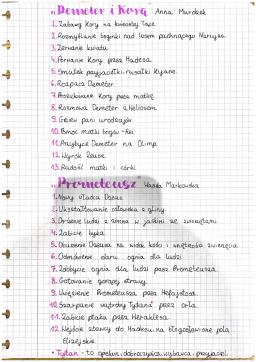 "Demeter i Kora" Anna Murdzek
1. Zabawy Kory na kwiecistej łące.
2. Rozmyślanie bogini nad losem pachnącego Narcyza.
3. Zerwanie kwiatu.
4. Porwanie Kory przez Hadesa.
5. Smutek przyjaciółki rusałki Kyane.
6. Rozpacz Demeter.
7. Poszukiwanie Kory przez matkę.
8. Rozmowa Demeter z Heliosem.
9. Gniew pani urodzajów
10. Pomoc matki bogów - Rei
11. Przybycie Demeter na Olimp
12. Wyrok Zeusa.
13. Radość matki i córki
"Prometeusz" Wanda Markowska
1. Nowy władca Dzeus
2. Ukształtowanie człowieka z gliny
3. Drżenie ludzi z zimna w jaskini ze zwierzętami
4. Zabicie byka
5. Dzeusa na widok kości i wnętrzności zwierzęcia
6. Odmówienie daru ognia dla ludzi
7. Zdobycie ognia dla ludzi przez Prometeusza
8. Gotowanie gorącej strawy.
9. Uwięzienie Prometeusza przez Hefajstosa
10. Szarpanie wątroby Tytana* przez orła
11. Zabicie ptaka przez Heraklesa
12. Wejście zbawcy do Hadesu na błogosławione pola
Elizejskie
* Tytan - to opiekun, dobroczyńca, wybawca, przyjaciel.